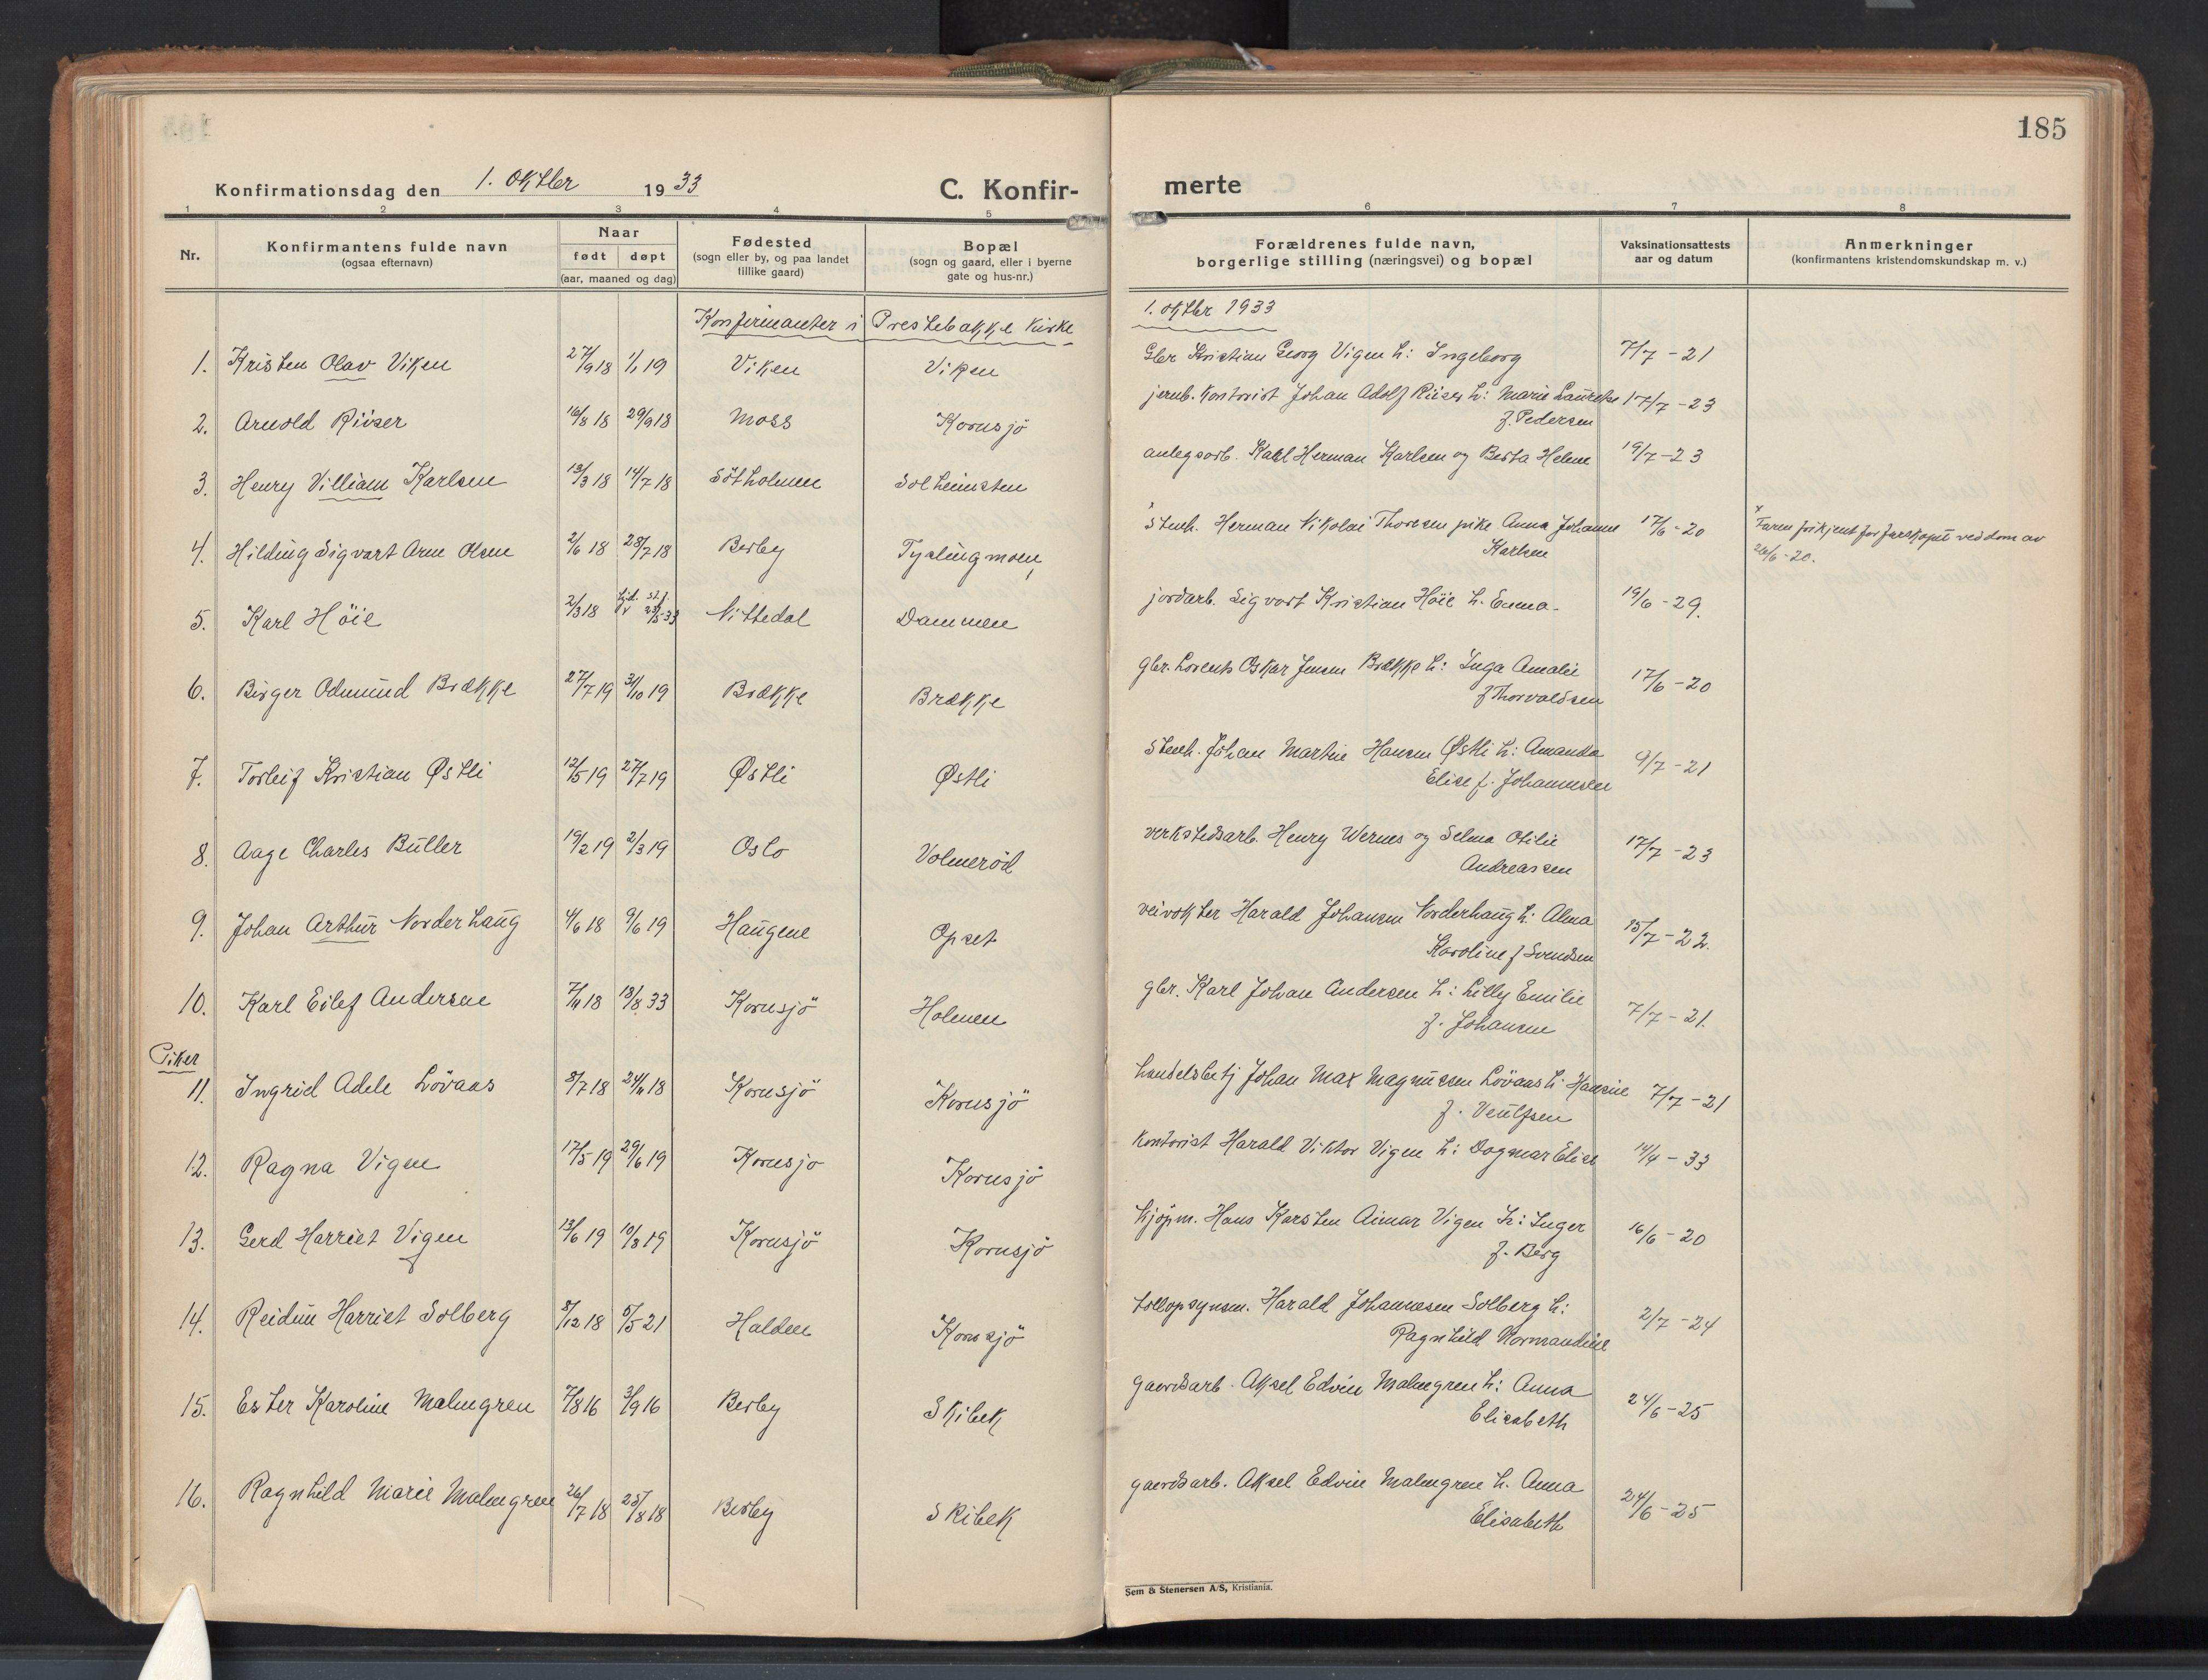 185
Konfirmationsdag den 1. oktber 1933
C. Konfir- merte
1 2 3 4 5 6 7 8
Nr.
Konfirmantens fulde navn
(ogsaa efternavn)
Naar
født døpt
(aar, maaned og dag)
Fødested
(sogn eller by, og paa landet
tillike gaard)
Bopæl
(sogn og gaard, eller i byerne
gate og hus-nr.)
Forældrenes fulde navn,
borgerlige stilling (næringsvei) og bopæl
Vaksinationsattests
aar og datum
Anmerkninger
(konfirmantens kristendomskundskap m. v.)
Konfirmanter i Prestebakke Kirke 1. oktber 1933
1. Kristen Olav Viken 27/9 18 1/1 19 Viken Viken Gbr Kristian Georg Vigen h: Ingeborg 7/7 - 21
2. Arnold Riiser 16/8 18 29/9 18 Moss Kornsjö jernb. kontorist Johan Adolf Riiser h: Marie Lauretse 17/7 - 23
f. Pedersen
3. Henry Villiam Karlsen 13/3 18 14/7 18 Sötholmen Solheimsten anlegsarb. Karl Herman Karlsen og Berta Helene 19/7 - 23
4. Hilding Sigvart Arne Olsen 2/6 18 28/7 18 Berby Tyslingmoen x stenh. Herman Nikolai Thoresen pike Anna Johanne 17/6 - 20 x Faren frikjent for farskapet ved dom av
Karlsen 26/6 - 20.
5. Karl Höie 2/3 18 Nittedal Dammen jordarb. Sigvart Kristian Höie h. Emma. 19/6 - 29.
6. Birger Odmund Brække 27/7 19 31/10 19 Brække Brække gbr. Lorents Oskar Jensen Brække h: Inga Amalie 17/6 - 20
f Thorvaldsen
7. Torleif Kristian Østli 12/5 19 27/7 19 Østli Østli stenh. Johan Martin Hansen Østli h: Amanda 9/7 - 21
Elise f. Johannesen
8. Aage Charles Butler 19/2 19 2/3 19 Oslo Volmeröd verkstedsarb. Henry Wernes og Selma Otilie 17/7 - 23
Andreassen
9. Johan Arthur Norderhaug 4/6 18 9/6 19 Haugene Opset veivokter Harald Johansen Norderhaug h: Alma 15/7 - 22.
Karoline f Svendsen
10. Karl Eilef Andersen 7/11 18 13/8 33 Kornsjö Holmen gbr. Karl Johan Andersen h: Lilly Emilie 7/7 - 21.
f. Johansen
Piker
11. Ingrid Adele Lövaas 8/7 18 24/11 18 Kornsjö Kornsjö handelsbetj Johan Max Magnussen Lövaas h: Hansine 7/7 - 21
12. Ragna Vigen 17/5 19 29/6 19 Kornsjo Kornsjö kontorist Harald Viktor Vigen h: Dagmar Elise 14/4 - 33
13. Gerd Harriet Vigen 13/6 19 10/8 19 Kornsjö Kornsjö kjöpm. Hans Karsten Aimar Vigen h: Inger 16/6 - 20
f. Berg
14. Reidun Harriet Solberg 8/12 18 5/5 21 Halden Kornsjö tollopsynsm. Harald Johannesen Solberg h: 2/7 - 24
Ragnhild Normandine
15. Ester Karoline Malmgren 7/8 16 3/9 16 Berby Skibek gaardsarb. Aksel Edvin Malmgren h: Anna 24/6 - 25
Elisabeth
16. Ragnhild Marie Malmgren 26/7 18 25/8 18 Berby Skibek gaardsarb. Aksel Edvin Malmgren h. Anna 24/6 - 25
Elisabeth
Sem & Stenersen A/S, Kristiania.